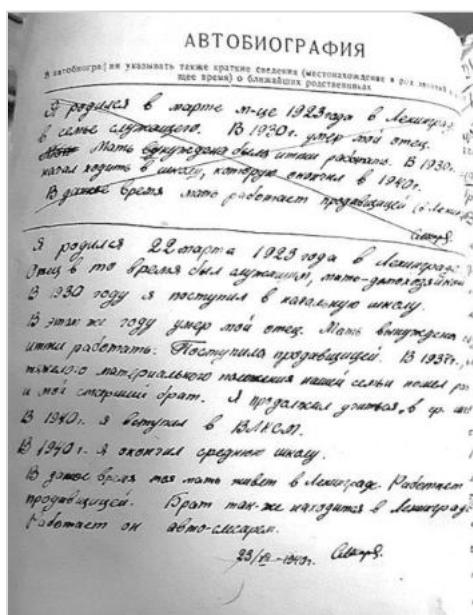 АВТОБИОГРАФИЯ
В автобиографии указывать также краткие сведения (местонахождение и род занятий в
щее время) о ближайших родственниках
Я родился в марте м-це 1923 года в Ленинград
в семье служащего. В 1930 г. умер мой отец.
Мать вынуждена была итти работать. В 1930 г.
начал ходить в школу, которую окончил в 1940 г.
В даное время мать работает продавщицей (в Ленингр
Я родился 22 марта 1923 года в Ленинграде
Отец в то время был служащим, мать-домохозяйкой
В 1930 году я поступил в начальную школу.
В этом же году умер мой отец. Мать вынуждена
итти работать. Поступила продавщицей. В 1937 г.,
тяжелого материального положения нашей семьи пошел
и мой старший брат. Я продолжал учиться в ср.
В 1940 г. я вступил в ВЛКСМ.
В 1940 г. я окончил среднюю школу.
В даное время моя мать живет в Ленинграде. Работает
продавщицей. Брат так-же находится в Ленинград
Работает он авто-слесарем.